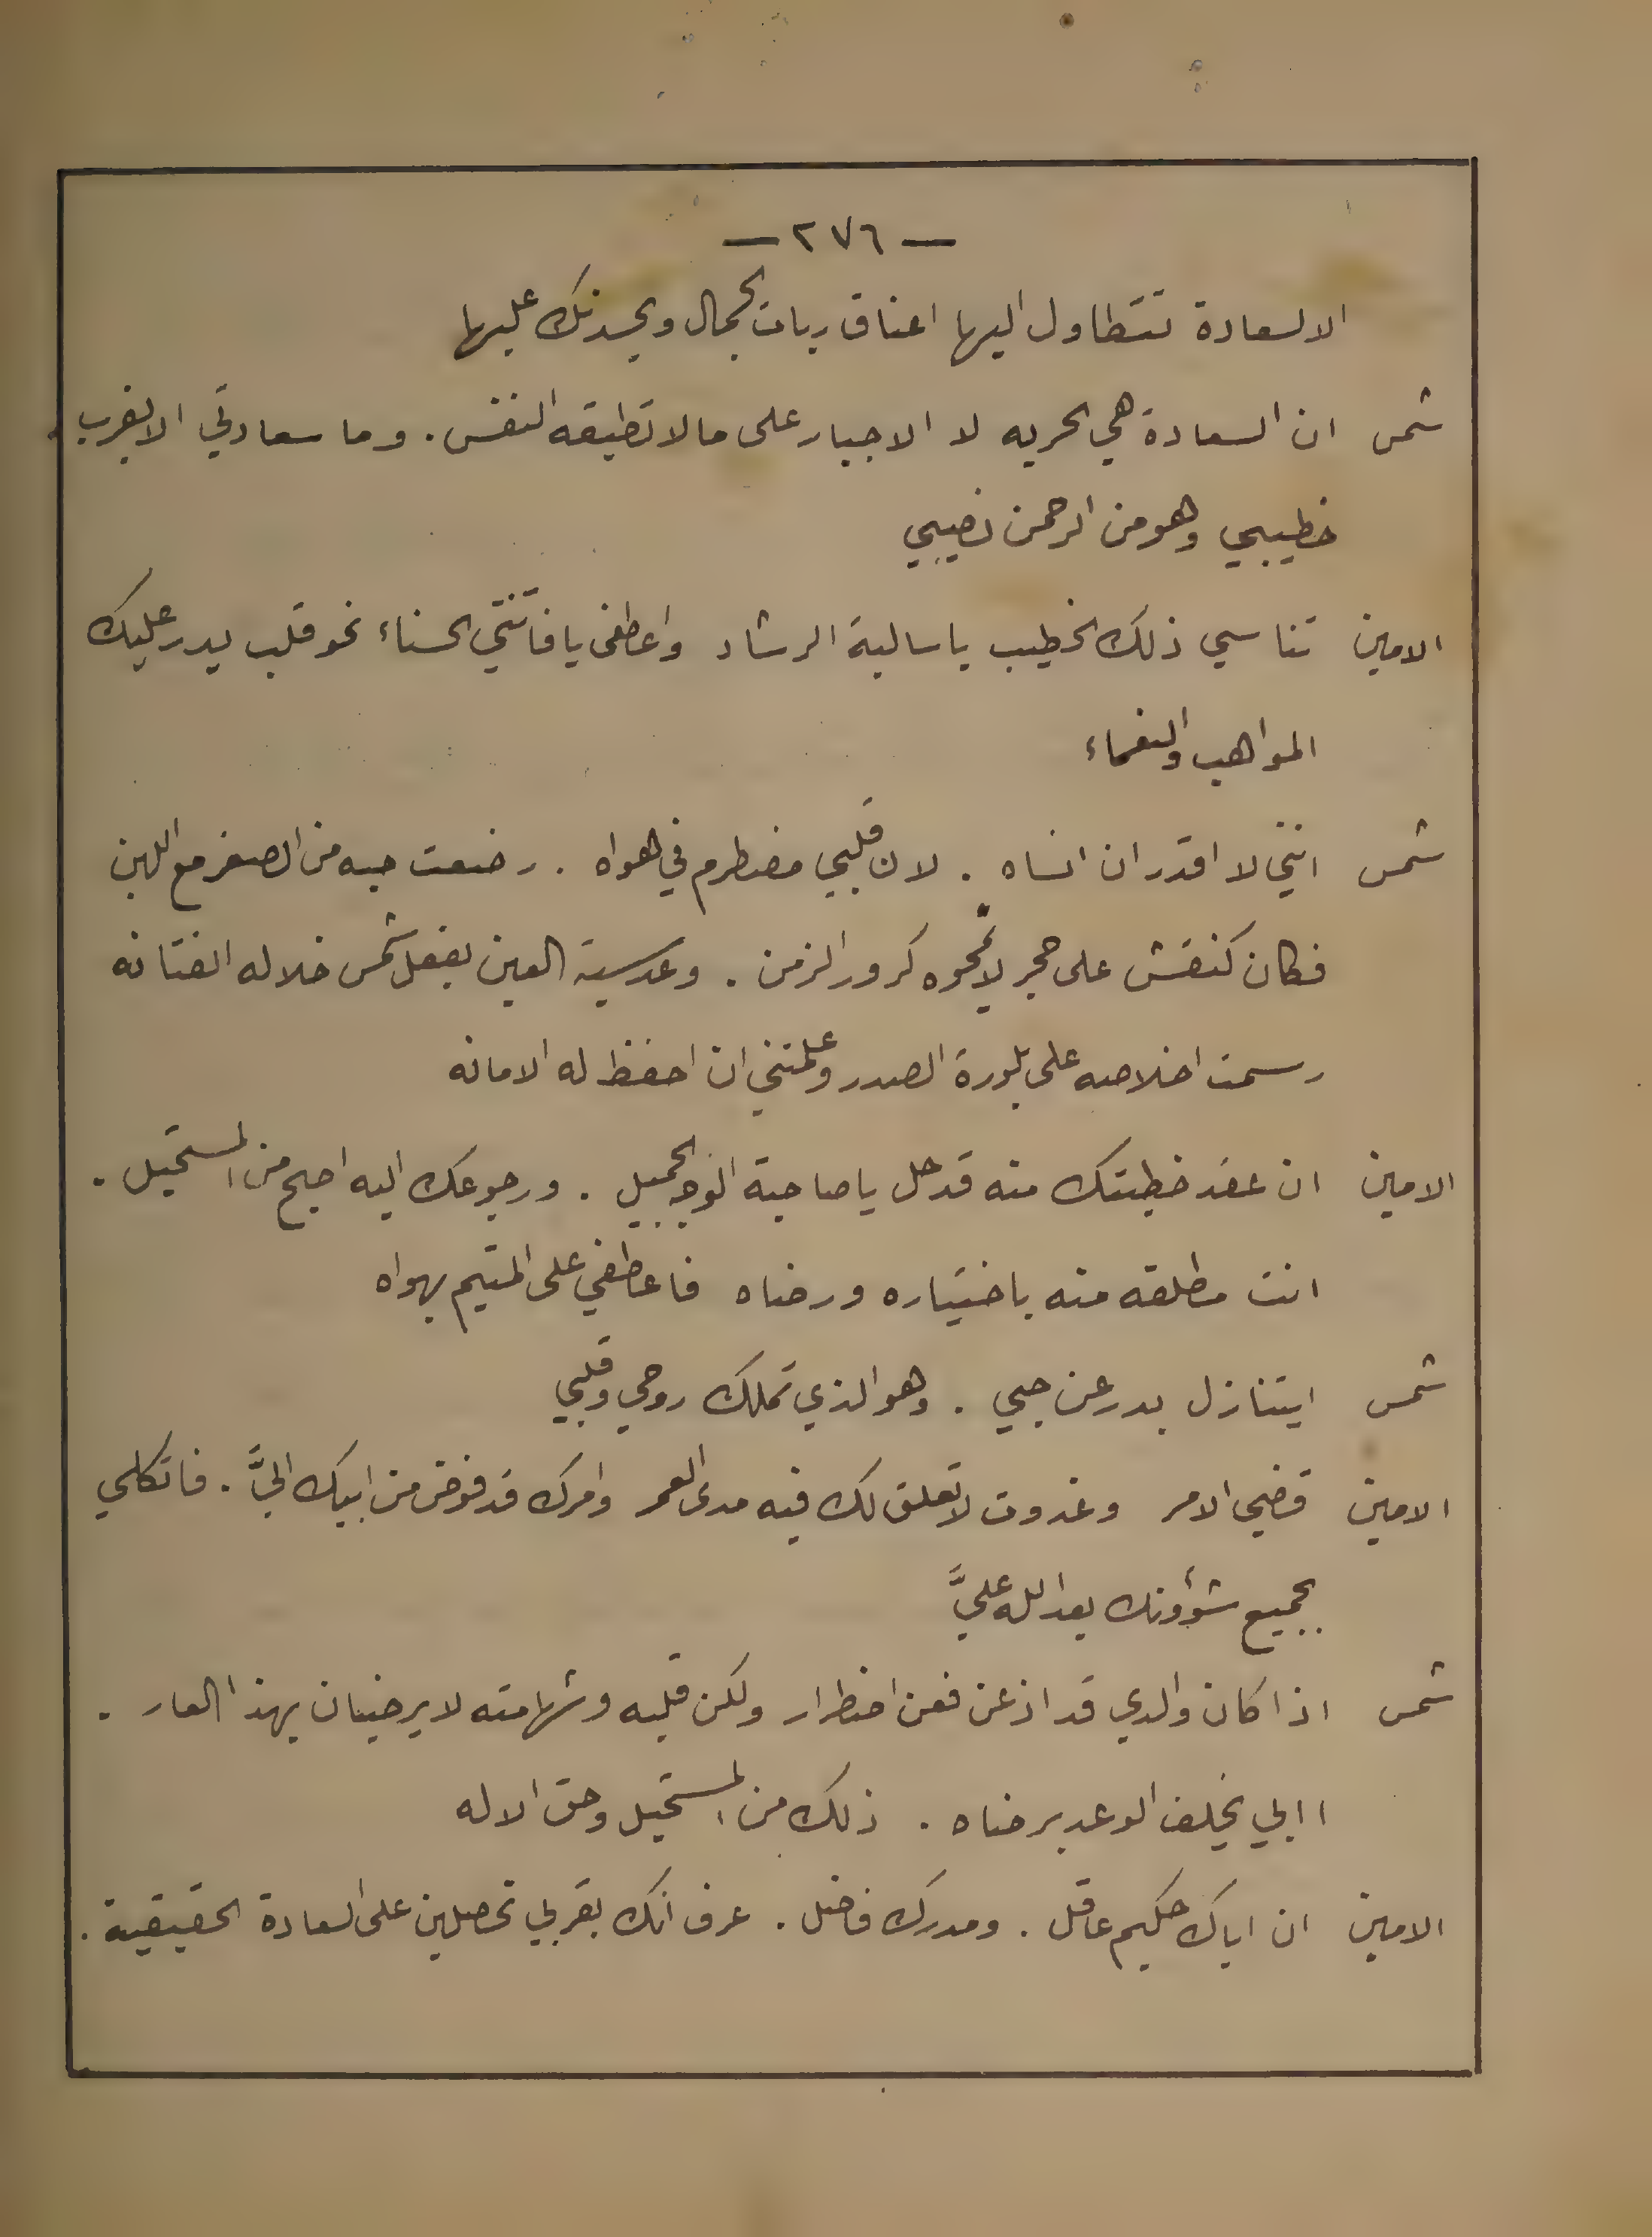 — ٢٧٦ —
الا لسعادة تتطاول اليها اعناق ربات الجمال ويحسدنك عليها
شمس ان السعادة هي الحريه لا الاجبار على ما لا تطيقه النفس . وما سعادتي الا بقرب
خطيبي وهو من الرحمن نصيبي
الامين تناسي ذلك الخطيب يا سالبة الرشاد واعطفي يا فاتنتي الحسناء نحو قلب يدر عليك
المواهب والنعماء
شمس انني لا اقدر ان انساه . لان قلبي مضطرم في هواه . رضعت حبه من الصغر مع اللبن
فكان كنقش على حجر لا يمحوه كرور الزمن . وعدسية العين بفعل شمس خلاله الفتانه
رسمت اخلاصه على بلورة الصدر وعلمتني ان احفظ له الامانه
الامين ان عقد خطبتك منه قد حل يا صاحبة الوجه الجميل . ورجوعك اليه اصبح من المستحيل .
انت مطلقه منه باختياره ورضاه فاعطفي على المتيم بهواه
شمس ايتنازل بدر عن حبي . وهو الذي تملك روحي وقلبي
الامين قضي الامر وغدوت لا تعلق لك فيه مدى العمر وامرك قد فوض من ابيك اليَّ . فاتكلي
بجميع شؤونك بعد الله عليَّ
شمس اذا كان والدي قد اذعن فعن اضطرار ولكن قلبه وشهامته لا يرضيان بهذا العار .
ا ابي يخلف الوعد برضاه . ذلك من المستحيل وحق الاله
الامين ان اباك حكيم عاقل . ومدرك فاضل . عرف انك بقربي تحصلين على السعادة الحقيقية .